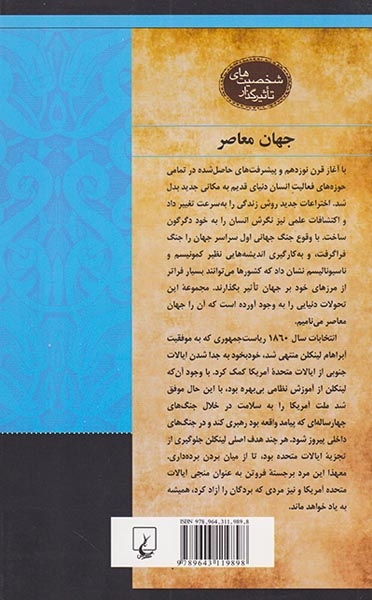 شخصیت‌های
تأثیرگذار
جهان معاصر
با آغاز قرن نوزدهم و پیشرفت‌های حاصل‌شده در تمامی
حوزه‌های فعالیت انسان دنیای قدیم به مکانی جدید بدل
شد. اختراعات جدید روش زندگی را به‌سرعت تغییر داد
و اکتشافات علمی نیز نگرش انسان را به خود دگرگون
ساخت. با وقوع جنگ جهانی اول سراسر جهان را جنگ
فراگرفت، و به‌کارگیری اندیشه‌هایی نظیر کمونیسم و
ناسیونالیسم نشان داد که کشورها می‌توانند بسیار فراتر
از مرزهای خود بر جهان تأثیر بگذارند. مجموعهٔ این
تحولات دنیایی را به وجود آورده است که آن را جهان
معاصر می‌نامیم.
انتخابات سال ۱۸۶۰ ریاست‌جمهوری که به موفقیت
ابراهام لینکلن منتهی شد، خودبخود به جدا شدن ایالات
جنوبی از ایالات متحدهٔ آمریکا کمک کرد. با وجود آن‌که
لینکلن از آموزش نظامی بی‌بهره بود، با این حال موفق
شد ملت آمریکا را به سلامت در خلال جنگ‌های
چهارساله‌ای که پیامد واقعه بود رهبری کند و در جنگ‌های
داخلی پیروز شود. هر چند هدف اصلی لینکلن جلوگیری از
تجزیهٔ ایالات متحده بود، تا از میان بردن برده‌داری،
معهذا این مرد برجستهٔ فروتن به عنوان منجی ایالات
متحده آمریکا و نیز مردی که بردگان را آزاد کرد، همیشه
به یاد خواهد ماند.
ISBN 978_964_311_989_8
9789643119898